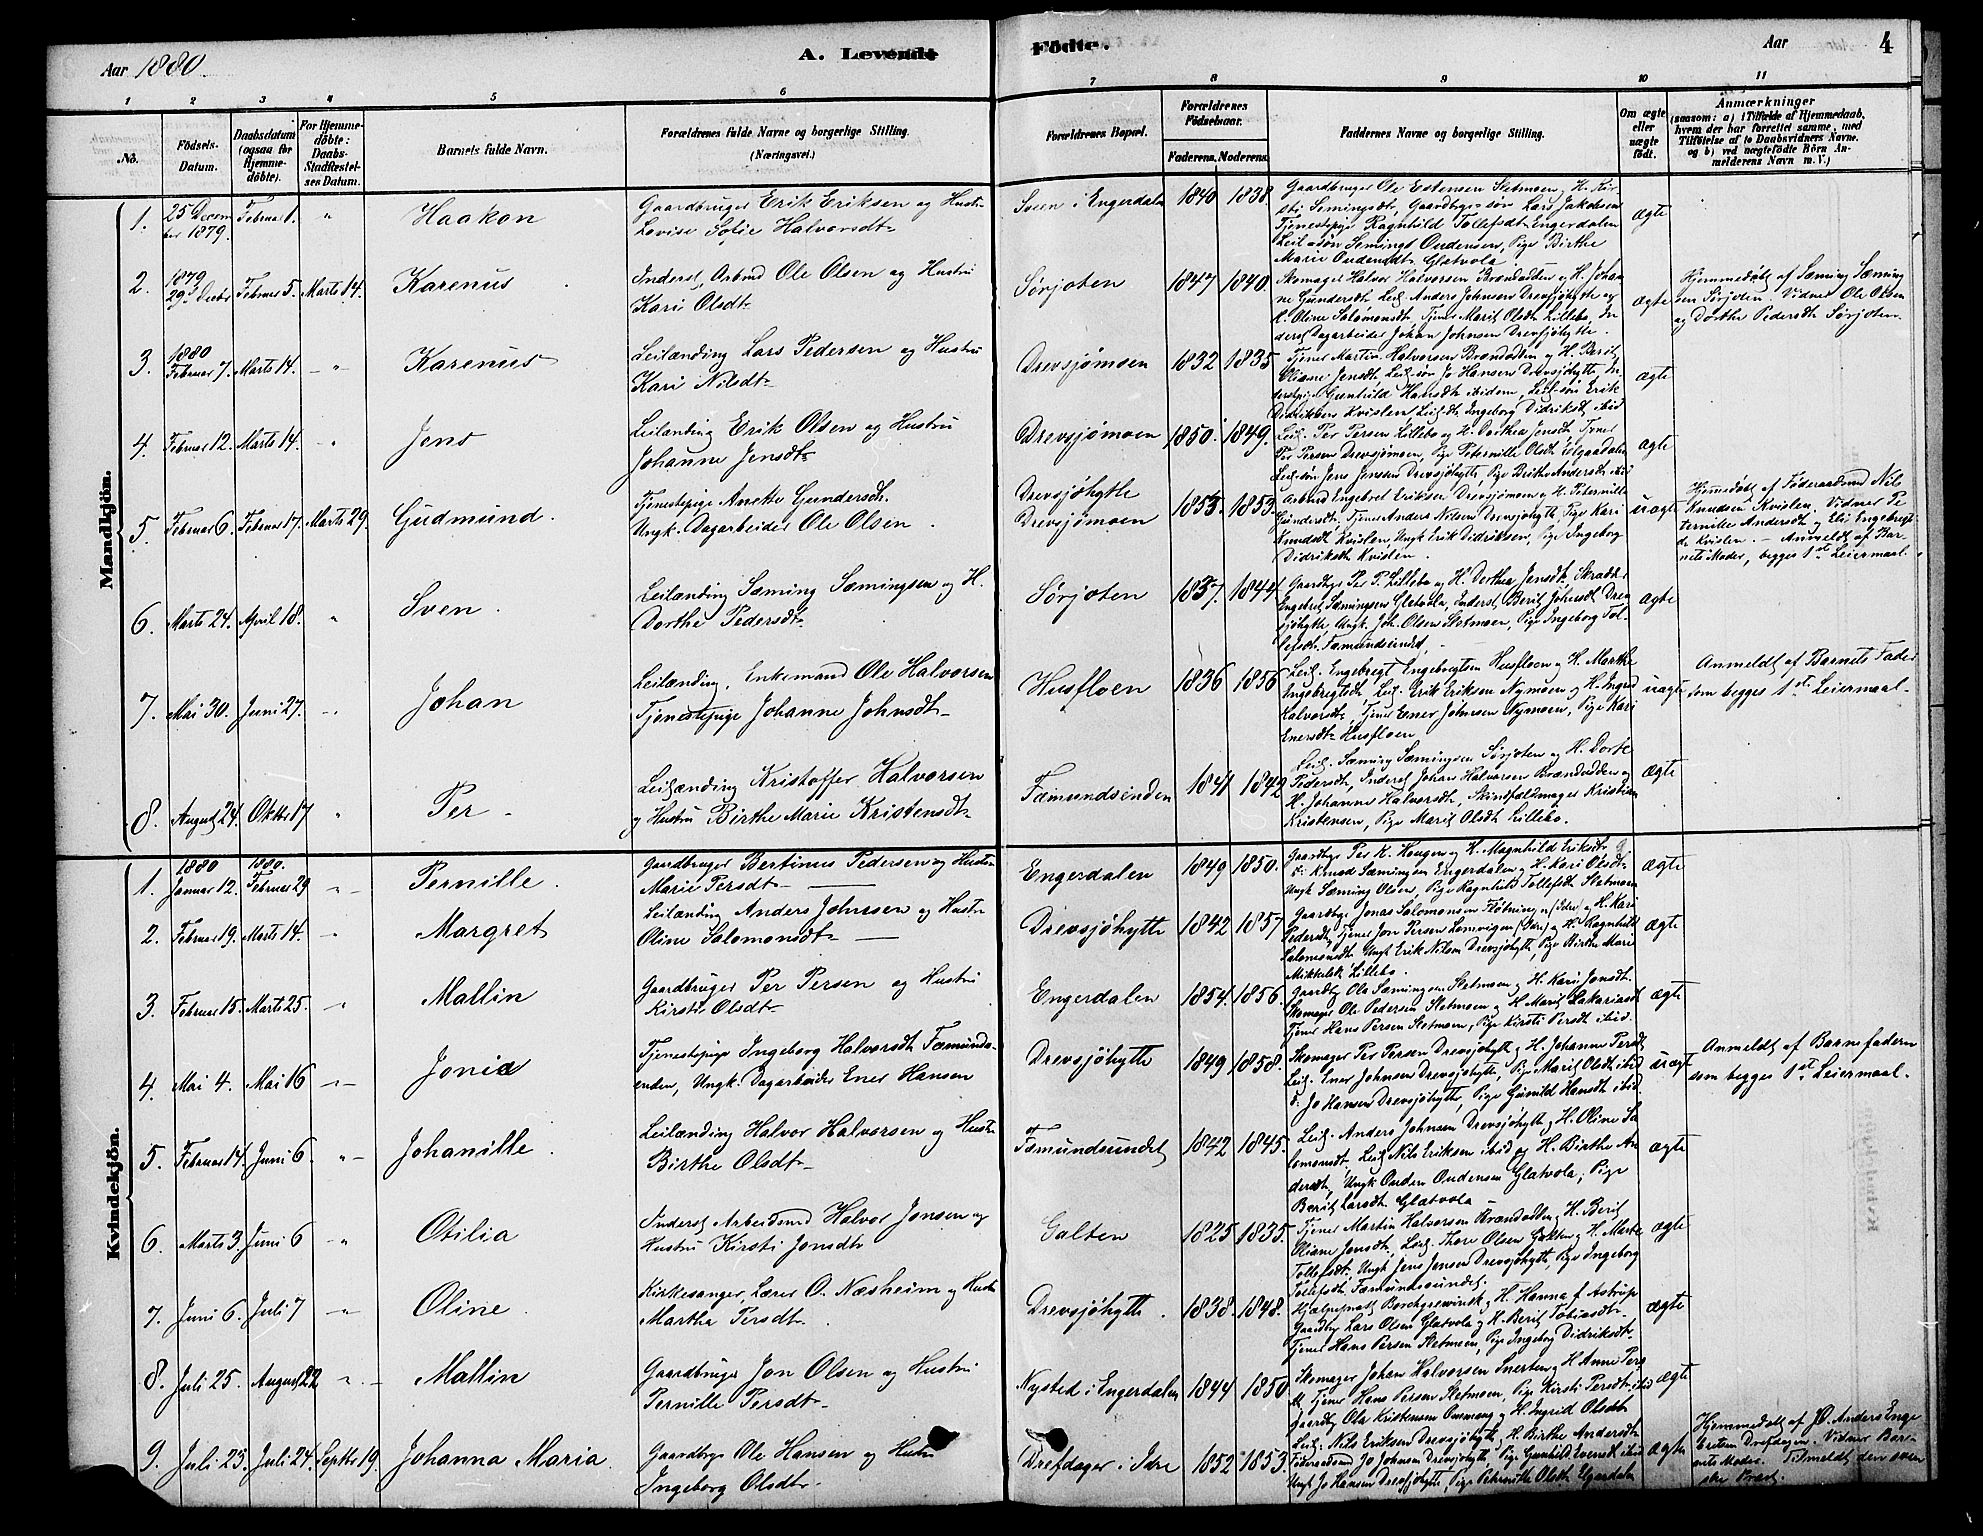 Aar 1880.
A. Levendt
Födte.
Aar
4
1 2 3 4 5 6 7 8 9 10 11
No.
Födsels-Datum.
Daabsdatum (ogsaa for Hjemme-döbte).
For Hjemme-döbte: Daabs-Stadfæstelses Datum.
Barnets fulde Navn.
Forældrenes fulde Navne og borgerlige Stilling.
(Næringsvei.)
Forældrenes Bopæl.
Forældrenes Födselsaar.
Faderens. Moderens.
Faddernes Navne og borgerlige Stilling.
Om ægte eller uægte födt.
Anmærkninger
(saasom: a) i Tilfælde af Hjemmedaab, hvem der har forrettet samme, med Tilföielse af to Daabsvidners Navne. og b) ved uægtefödte Börn Anmelderens Navn m. V.)
Mandkjön.
1. 25 December 1879. Februar 1. " Haakon
Gaardbruger Erik Eriksen og Hustr
Lovise Sofie Halvorsdt
Sveen i Engerdalen 1840 1838
Gaardbruger Ole Estensen Sletmoen og H. Kir
Tjenestepige Ragnhild Tollefsdt Engerdalen
ægte
2. 1879 29 Decbr Februar 5. Marts 14. Karenus
Inderst, Arbmd Ole Olsen og Hustru
Kari Olsdt
Sørjoten 1847 1840
Skomager Halvor Halvorsen Brændvolden og H. Johan
ne Gundersdt, Leil. Anders Johnsen Drevsjøhytte og
H. Oline Salomonsdt, Tjener Marit Olsdt Lillebo, In
derst Dagarbeider Johan Johnsen Drevsjøhytte.
ægte
Hjemmedøbt af Sæming Sæming
sen Sørjoten. Vidner Ole Olsen
og Dorthe Pedersdt Sørjoten.
3. 1880 Februar 7. Marts 14. " Karenus
Leilænding Lars Pedersen og Hustru
Kari Nilsdt
Drevsjømoen 1832 1835
Oliane Jensdt, Leil-søn Jo Hansen Drevsjøhytte, In
Didriksen Kvislen Leil-dt Ingeborg Didriksdt ibid
ægte
4. Februar 12. Marts 14. " Jens
Leilænding Erik Olsen og Hustru
Johanne Jensdt
Drevsjømoen 1850. 1849.
Leil. Per Persen Lillebo og H. Dorthea Jensdt, Tjener
Per Persen Drevsjømoen, Pige Peternille Olsdt Elgaadalen
Leil-søn Jens Jensen Drevsjøhytte, Pige Birthe Andersdt ibid
ægte
5. Februar 6. Februar 17. Marts 29. Gudmund.
Tjenestepige Anette Gundersdt.
Ungk. Dagarbeider Ole Olsen.
Drevsjøhytte
Drevsjømoen 1855. 1853.
Arbmd Engebret Eriksen Drevsjømoen og H. Peternille
Gundersdt, Tjener Anders Nilsen Drevsjøhytte, Pige Kari
Knudsdt Kvislen, Ungk Erik Didriksen, Pige Ingeborg
Didriksdt Kvislen.
uægte
Hjemmedøbt af Føderaadsmd Nils
Knudsen Kvislen. Vidner Pe
ternille Andersdt og Eli Engebregt
dt Kvislen. — Anmeldt af Bar
nets Moder, begges 1st Leiermaal.
6. Marts 24. April 18. " Sven.
Leilænding Sæming Sæmingsen og H.
Dorthe Pedersdt
Sørjoten 1837. 1844.
Gaardbrg Per P. Lillebo og H. Dorthea Jensdt, Skrædder
Engebret Sæmingsen Glatvola, Inderst Berit Johnsdt Drev
sjøhytte, Ungk. Joh. Olsen Sletmoen, Pige Ingeborg Tol
lefsdt Fæmundsundet.
ægte
7. Mai 30. Juni 27. " Johan
Leilænding, Enkemand Ole Halvorsen
Tjenestepige Johanne Johnsdt
Husfloen 1836 1856
Leil. Engebregt Engebregtsen Husfloen og H. Marthe
Engebregtsdt, Leil. Erik Eriksen Nymoen og H. Ingrid
Halvorsdt, Tjener Ener Johnsen Nymoen, Pige Kari
Enersdt Husfloen
uægte
Anmeldt af Barnets Fader
som begges 1st Leiermaal.
8. August 24. Oktbr 17 " Per
Leilænding Kristoffer Halvorsen
og Hustru Birthe Marie Kristensdt
Fæmundsenden 1841 1842
Leil. Sæming Sæmingsen Sørjoten og H. Dorte
Pedersdt, Inderst Johan Halvorsen Brændvolden og
H. Johanne Halvorsdt, Skindfældmager Kristian
Kristensen, Pige Marit Olsdt Lillebo.
ægte
Kvindekjön.
1. 1880 Januar 12. 1880. Februar 29 " Pernille.
Gaardbruger Bertinus Pedersen og Hustru
Marie Persdt
Engerdalen 1849 1850.
Gaardbrg Per K. Haugen og H. Magnhild Eriksdt
Knud Sæmingsen Engerdalen og H. Kari Olsdt
Ungk Sæming Olsen, Pige Ragnhild Tollefsdt Sletmoen
ægte
2. Februar 19. Marts 14. " Margret
Leilænding Anders Johnsen og Hustr
Oline Salomonsdt
Drevsjøhytte 1842 1857
Gaardbrg Jonas Salomonsen Fløtningen (Idre) og H. Kari
Pedersdt, Tjener Jon Persen Lomvigen (Idre) og H. Ragnhild
Salomonsdt, Ungk Erik Nilsen Drevsjøhytte, Pige Birthe Marie
Mikkelsdt Lillebo.
ægte
3. Februar 15. Marts 25. " Mallin
Gaardbruger Per Persen og Hustru
Kirsti Olsdt
Engerdalen 1854. 1856.
Gaardbrg Ole Sæmingsen Sletmoen og H. Kari Jonsdt.
Skomager Ole Pedersen Sletmoen og H. Marit Zakariasdt
Tjener Hans Persen Sletmoen, Pige Kirsti Persdt ibid.
ægte
4. Mai 4. Mai 16 " Jonia
Tjenestepige Ingeborg Halvorsdt Fæmunds-
enden, Ungk. Dagarbeider Ener Hansen
Drevsjøhytte 1849 1858.
Skomager Per Persen Drevsjøhytte og H. Johanne Persdt
Leil. Ener Johnsen Drevsjøhytte, Pige Marit Olsdt ibid
Jo Hansen Drevsjøhytte, Pige Gunild Hansdt ibid.
uægt
Anmeldt af Barnefaderen
som begges 1st Leiermaal.
5. Februar 14. Juni 6. " Johanille.
Leilænding Halvor Halvorsen og Hustr
Birthe Olsdt
Fæmundsundet 1842 1845.
Leil. Anders Johnsen Drevsjøhytte og H. Oline Sa
lomonsdt, Leil Nils Eriksen ibid og H. Birthe An
dersdt, Ungk Ouden Oudensen Glatvola, Pige
Berit Larsdt Glatvola
ægte
6. Marts 3. Juni 6 " Otilia
Inderst Arbeidsmd Halvor Jonsen og
Hustru Kirsti Jonsdt
Galten 1825 1835.
Tjener Martin Halvorsen Brændvolden, H. Berit
Oliane Jensdt, Leil. Thore Olsen Galten og H. Marte
Tollefsdt, Ungk Jens Jensen Drevsjøhytte, Pige Ingeborg
Tollefsdt, Fæmundsundet.
ægte
7. Juni 6. Juli 7 " Oline.
Kirkesanger, Lærer O. Næsheim og Hustr
Martha Persdt
Drevsjøhytte. 1838. 1848.
Hjælpepræst Borchgrevink og H. Hanna f. Astrup
Gaardbrg Lars Olsen Glatvola og H. Berit Tobiasdt
Tjener Hans Persen Sletmoen, Pige Ingeborg Didriksdt
ægte
8. Juli 25. August 22 " Mallin
Gaardbruger Jon Olsen og Hustru
Pernille Persdt
Nysted i Engerdalen 1844 1850
Skomager Johan Halvorsen Snerten og H Anne Pers
dt, Tjener Hans Persen Sletmoen, Pige Kirsti Persdt ibid
Gaardbrg Ola Kristensen Ommang og H. Ingrid Olsdt
ægte
9. Juli 23. Juli 24. Septbr 19. Johanna Maria.
Gaardbrg Ole Hansen og Hustru
Ingeborg Olsdt
Drefdager i Idre 1852 1853.
Leil. Nils Eriksen Drevsjøhytte, H. Birthe Andersdt
Føderaadsmd Jo Johnsen Drevsjøhytte, Pige Gunhild Evensdt ibid
Ungk Jo Hansen Drevsjøhytte, Pige Peternille Olsdt Elgaadalen
ægte
Hjemmedøbt af Anders Enge
Vidner Bar
nets Moder. Tilmeldt den sven
ske Præst.